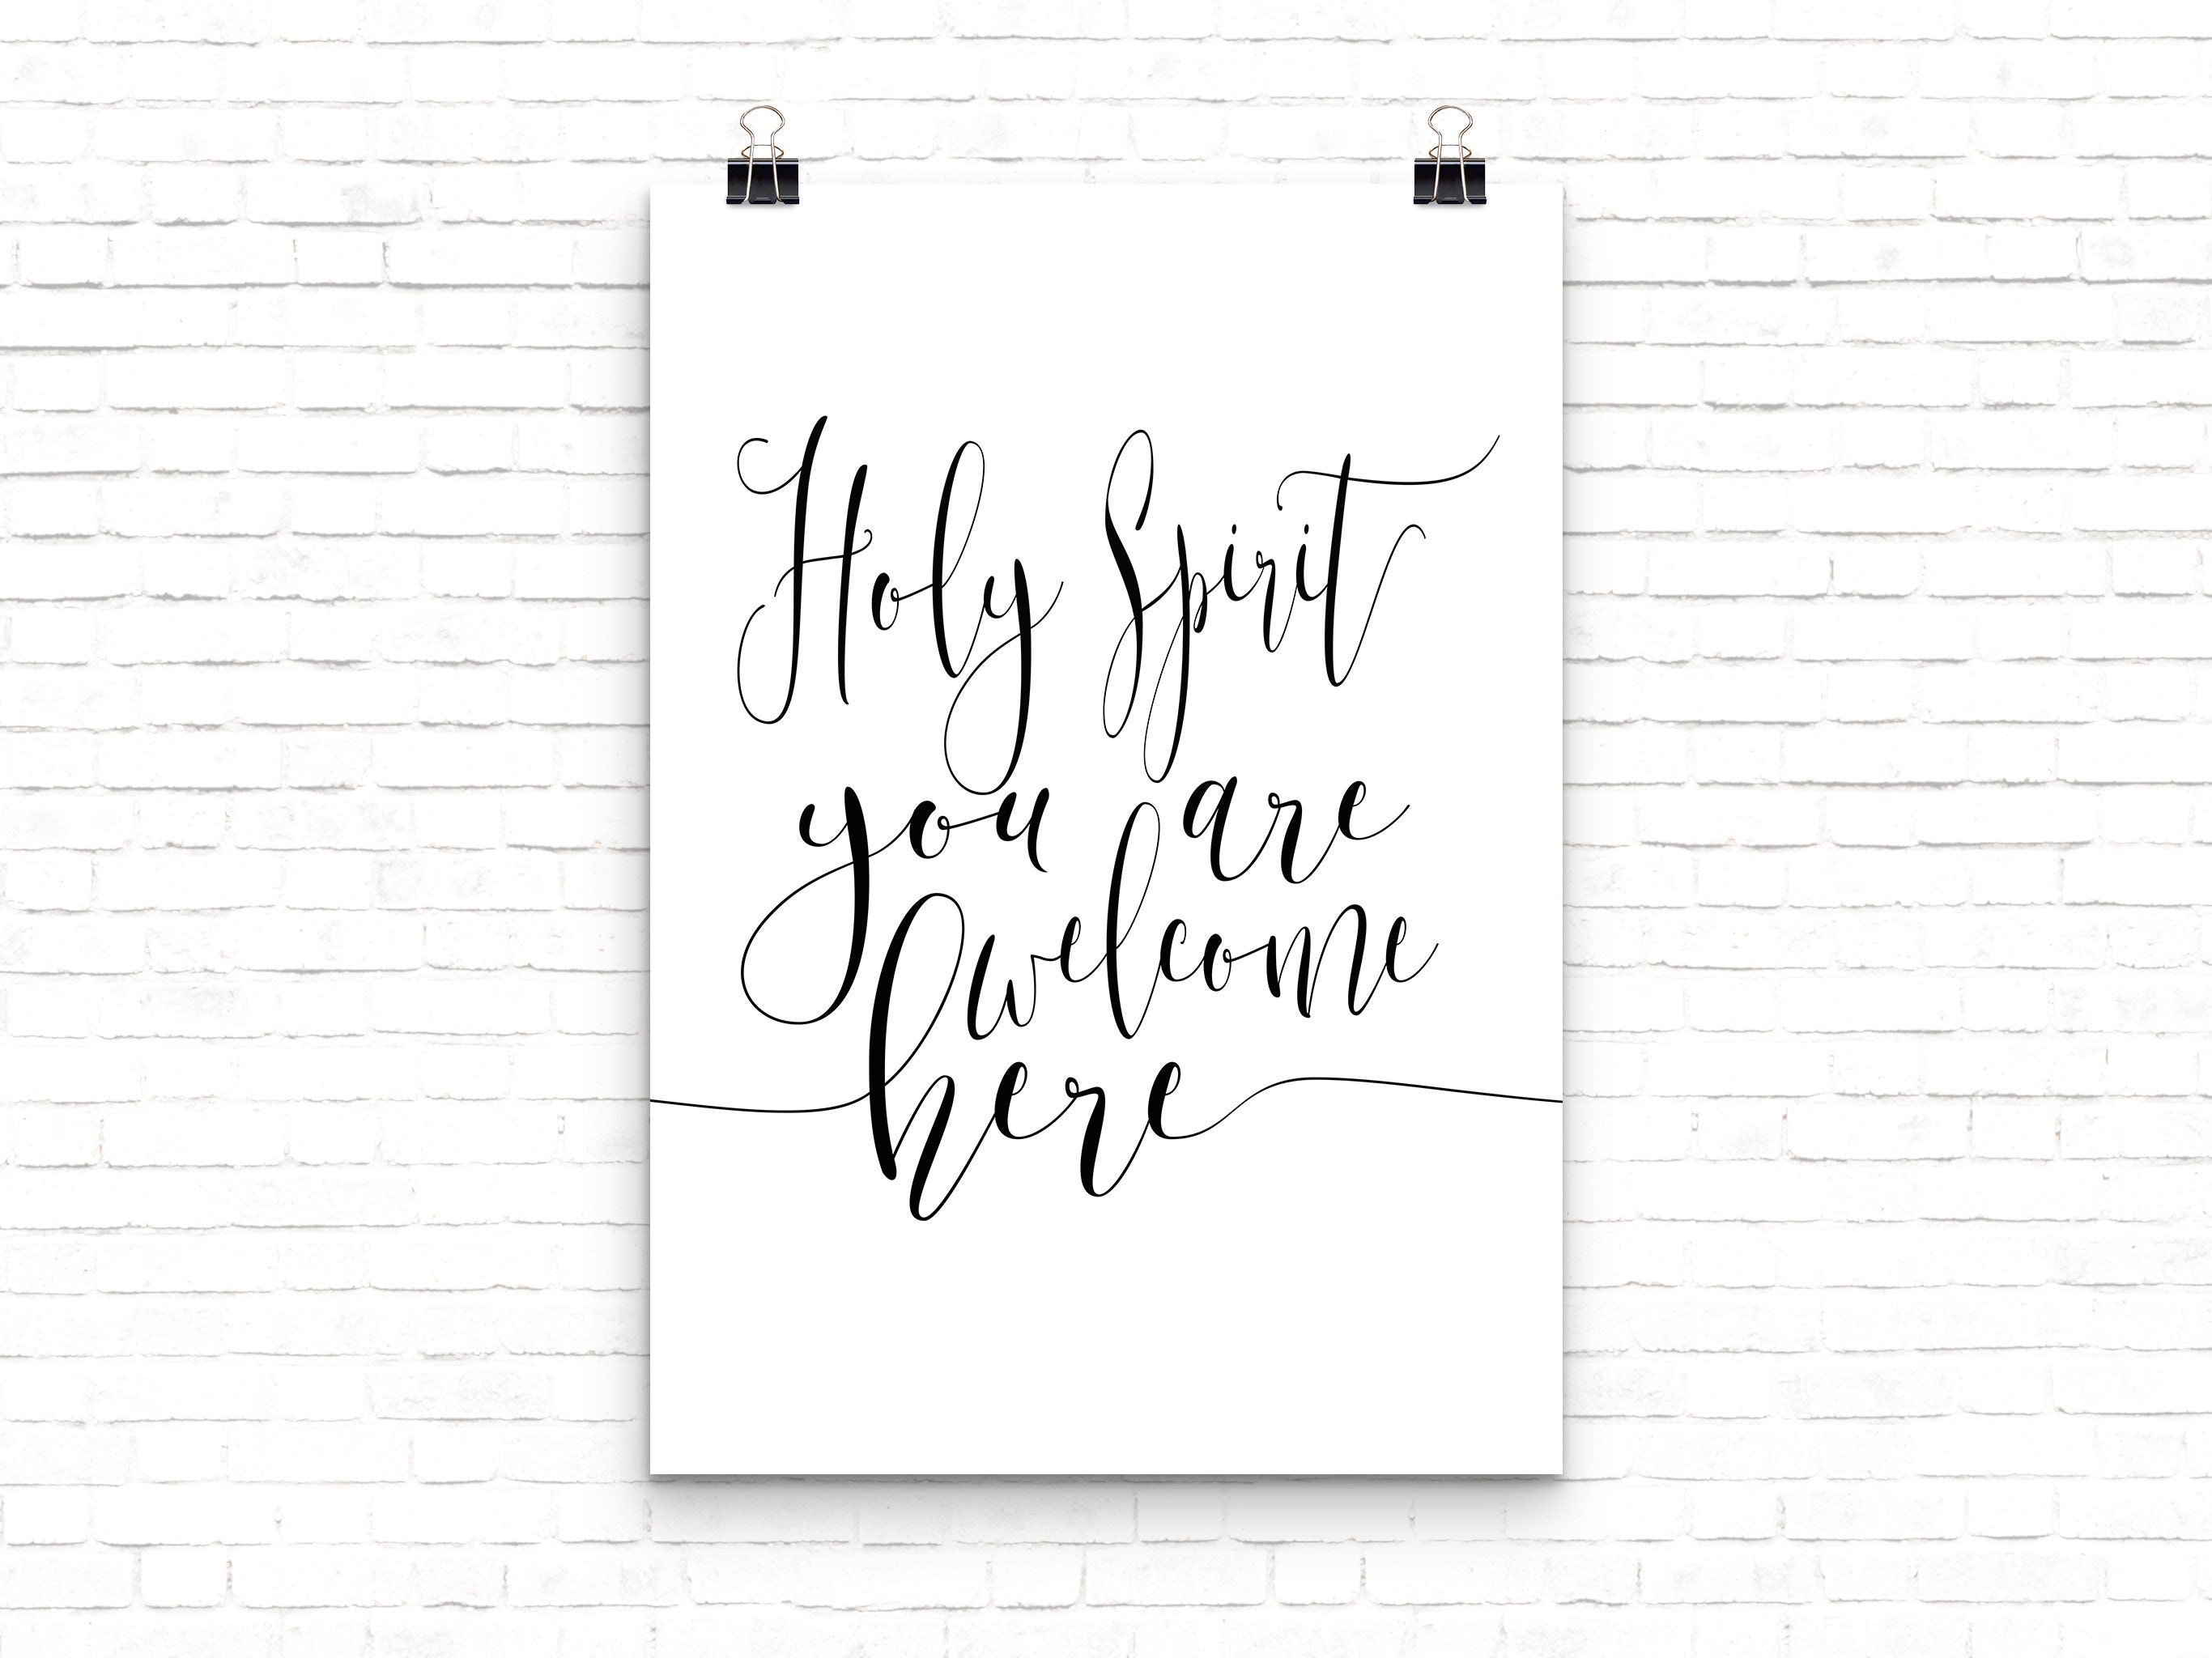 Holy Spirit
you are
welcome
here